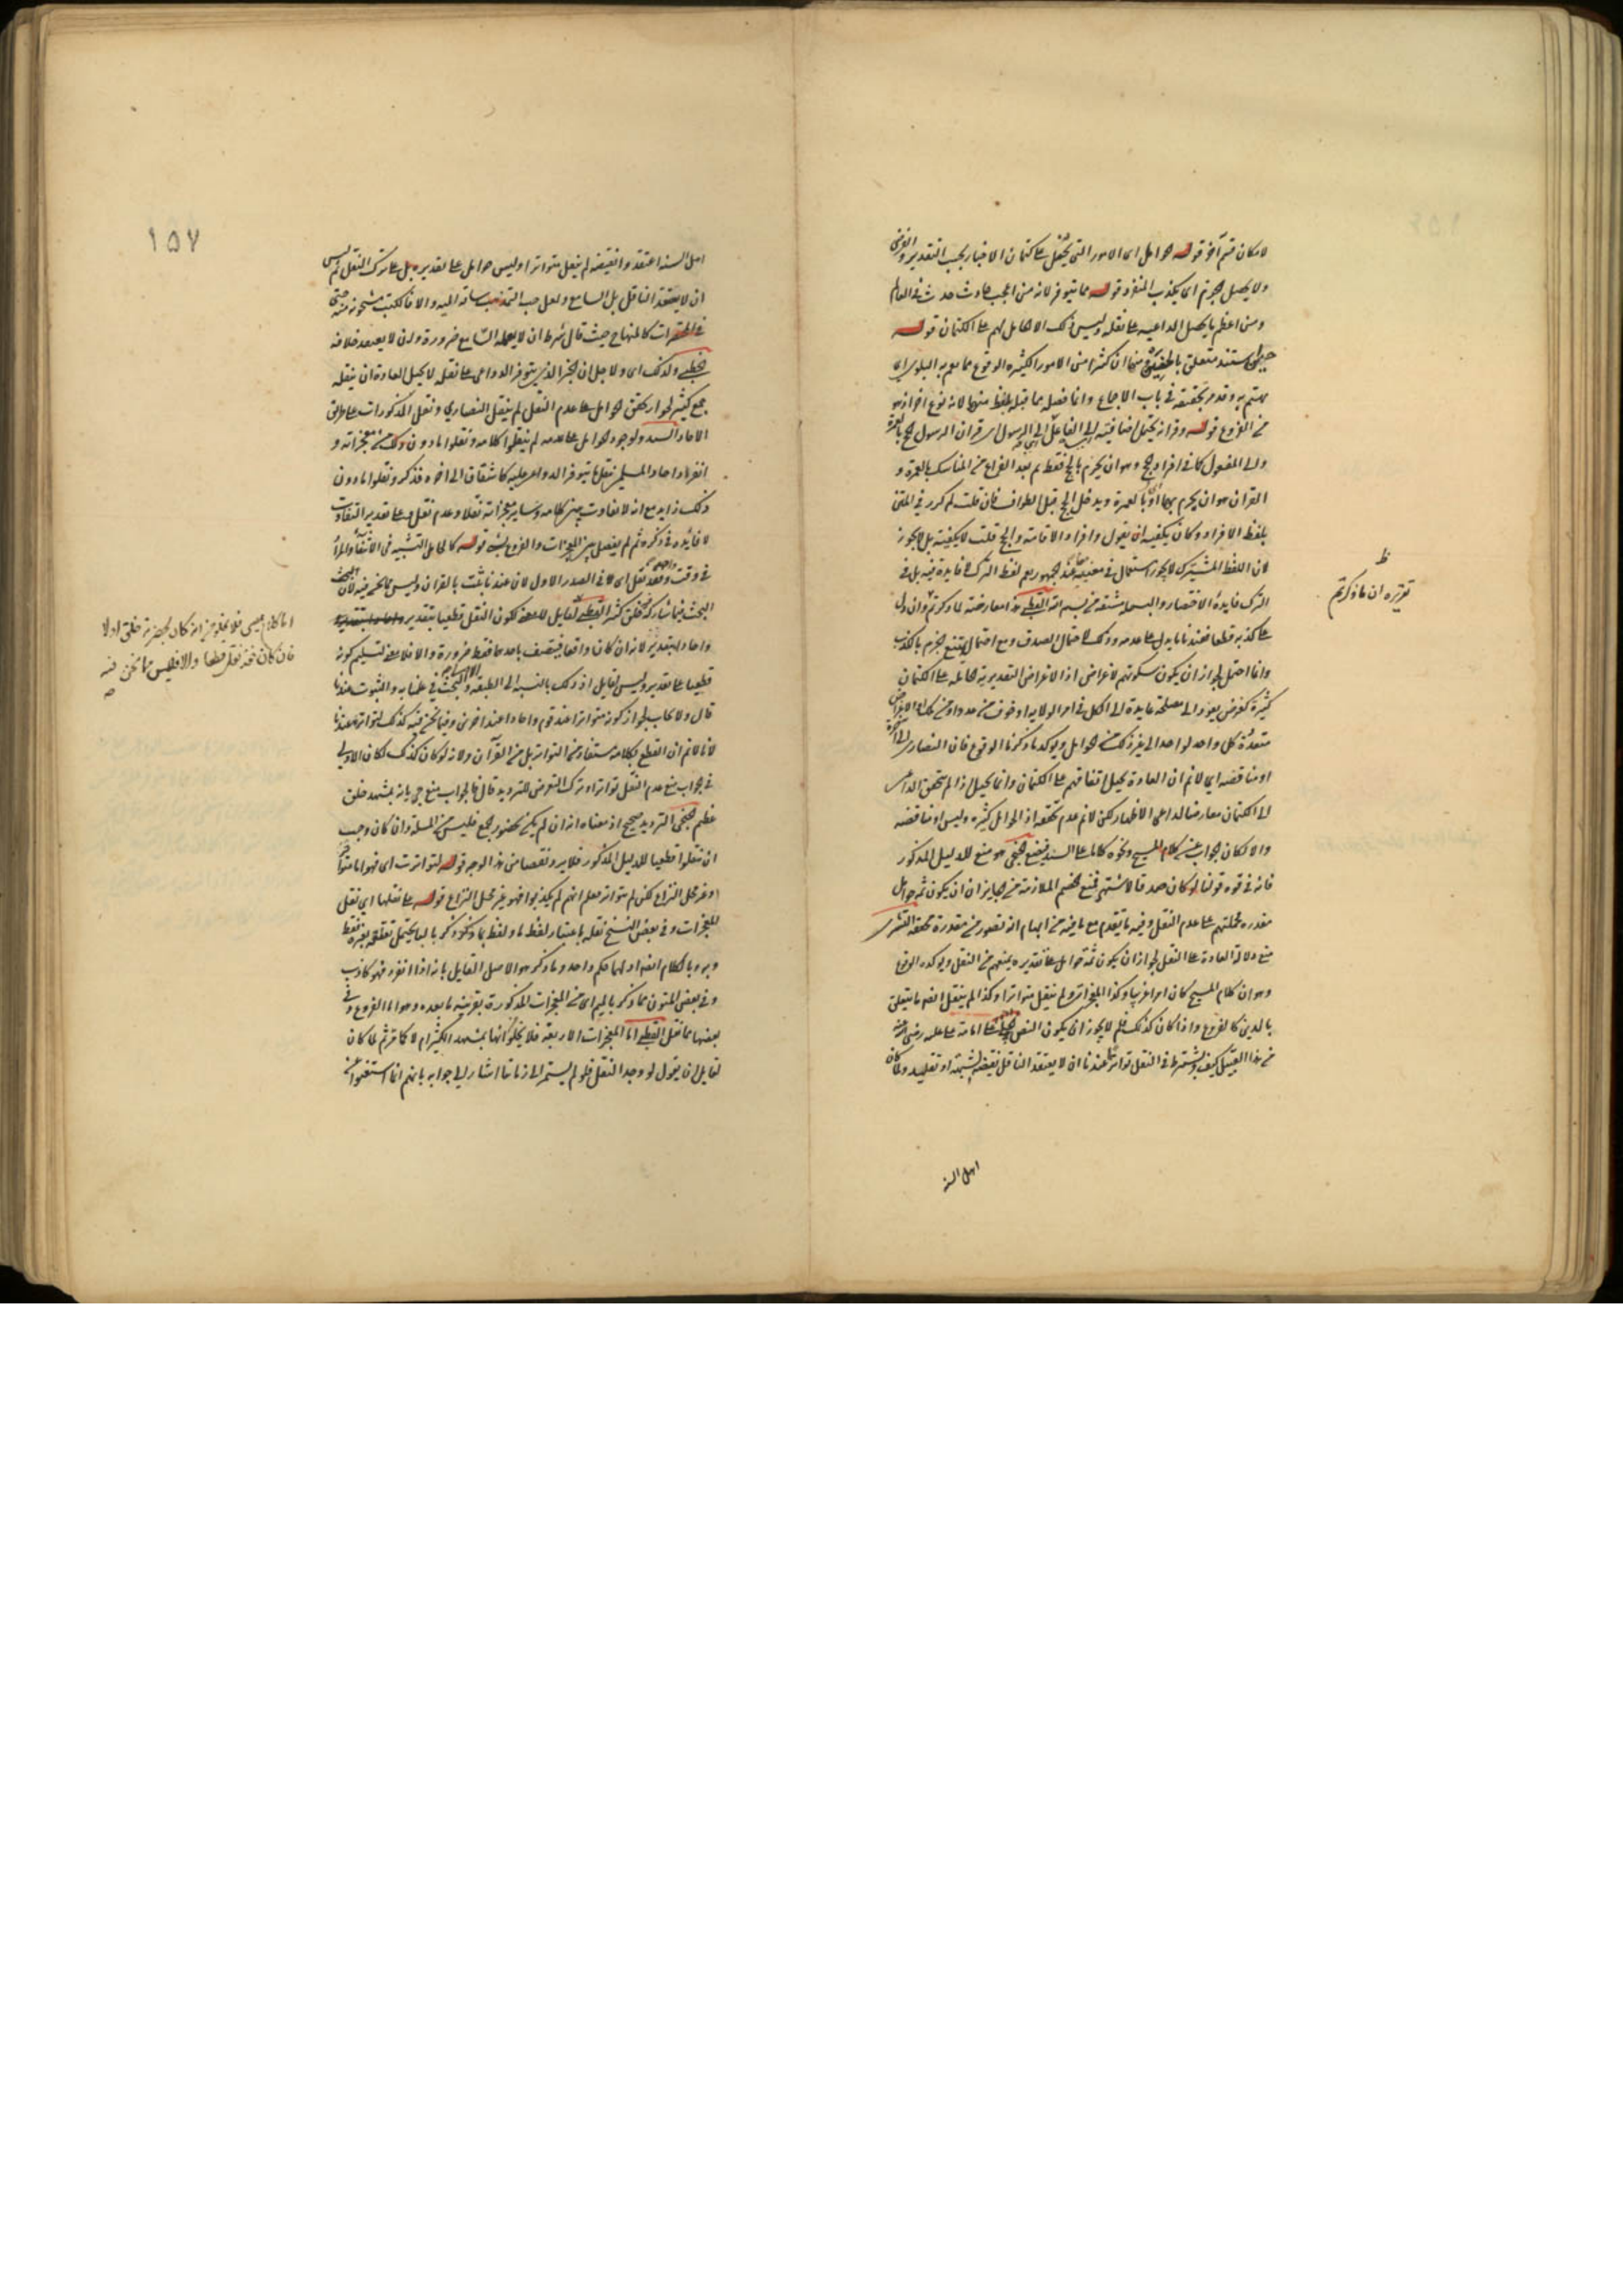 لامكان قسم آخر قوله حوامل اى الامور التى تحمل على كتمان الاخبار بحسب التقدير والغرض
ولا يحصل الجزم اى بكذب المنفرد قوله مما يتوفر لانه من اعجب حادث حدث فى العالم
ومن اعظم ما يحمل الداعية على نقله وليس ذلك الا لحامل لهم على الكتمان قوله
مستند متعلق منها ان كثيرا من الامور الكثيرة الوقوع مما يعم به البلوى اى
يهتم به وقد مر تحقيقه فى باب الاجماع وانما فصله مما قبله بلفظ منها لانه نوع اخر اذ هو
من الفروع قوله وقرانه يحتمل اضافته الى الفاعل اى الرسول اى قران الرسول الحج بالعمرة
والى المفعول كما فى افراد الحج وهو ان يحرم بالحج فقط ثم بعد الفراغ من المناسك بالعمرة و
القران هو ان يحرم بهما او بالعمرة ويدخل الحج قبل الطواف فان قلت لم كرر فى المتن
بلفظ الافراد وكان يكفيه ان يقول وافراد الاقامة والحج قلت لا يكفيه بل لا يجوز
لان اللفظ المشترك لا يجوز استعماله فى معنييه عند الجمهور نعم لفظ الترك لا فايدة فيه بل فى
الترك فايدة الاختصار والبسملة مشتقة من بسم الله القطبى هذا معارضة لما ذكرتم وان دل
على كذبه قطعا فعندنا ما يدل على عدمه وذلك احتمال الصدق ومع احتماله يمتنع الجزم بالكذب
وانما احتمل لجواز ان يكون سكوتهم لاغراض اذ الاغراض التقديرية الحاملة على الكتمان
كثيرة كغرض يعود الى مصلحة عايدة الى الكل فى امر الولاية او خوف من عدو او من ملك او لاغراض
متعددة كل واحد لواحد الى غير ذلك من الحوامل ويؤكد ما ذكرنا الوقوع فان النصارى الى اخره
او مناقضة اى لا نم ان العادة تحيل اتفاقهم على الكتمان وانما تحيل اذا لم يتحقق الداعى
الى الكتمان معارضا لداعى الاظهار لكن لا نم عدم تحققه اذ الحوامل كثيرة وليس او مناقضة
والا لكان الجواب عن كلام المسيح ونحوه كلاما على السند الخنجى هو منع للدليل المذكور
فانه فى قوة قولنا لو كان صدقا لاشتهر فمنع الخصم الملازمة من الجايز ان يكون ثمه حوامل
مقدرة تحملهم على عدم النقل وفيه ما تقدم مع ما فيه من ابهام انه تصور من مقدرة محققة التسترى
منع دلالة العادة على النقل لجواز ان يكون ثمة حوامل على تقديره يمنعهم من النقل ويؤكده الوقوع
وهو ان كلام المسيح كان امرا غريبا وكذا المعجزات ولم ينقل متواترا وكذا لم ينقل ايضا ما يتعلق
بالدين كالفروع واذا كان كذلك فلم لا يجوز ان يكون النص الجلى على امامة على عليه رضى الله عنه
من هذا القبيل كيف ويشترط فى النقل تواترا عندنا ان لا يعتقد الناقل نقيضه لشبهة او تقليد ولما كان
اهل السنه
ظ
تقريره ان ما ذكرتم
١٥٧
اهل السنة اعتقدوا نقيضه لم ينقل متواترا وليس حوامل على تقديره بل على ترك النقل ثم ليس
ان لا يعتقد الناقل بل السامع ولعل حب المذهب ساقه اليه والا فالكتب مشحونة منه حتى
فى المختصرات كالمنهاج حيث قال شرط ان لا يعلمه السامع ضرورة وان لا يعتقد خلافه
الخطيبى ولذلك اى ولاجل ان الخبر الذى يتوفر الدواعى على نقله لا تحيل العادة ان ينقله
جمع كثير لجواز تحقق الحوامل على عدم النقل لم ينقل النصارى ونقل المذكورات على طريق
الاحاد السيد ولوجود الحوامل على عدمه لم ينقلوا كلامه ونقلوا ما دون ذلك من معجزاته و
انفراد احاد المسلمين بنقل ما يتوفر الدواعى عليه كانشقاق الى اخره فذكر ونقلوا ما دون
ذلك زايد مع انه لا تفاوت بين كلامه وساير معجزاته نقلا وعدم نقل وعلى تقدير التفاوت
لا فائدة فى ذكره ثم لم يفصل بين المعجزات والفروع بشىء قوله كالحامل التشبيه فى الانتفاء والمراد
فى وقت واحد نقل اى لا فى الصدر الاول لان عندنا ثبت بالقران وليس مما نحن فيه لان البحث
البحث فيما شاركه خلق كثير القطبى لقايل لا معنى لكون النقل قطعيا بتقدير
واحاد بتقدير لانه ان كان واقعا فيتصف باحدهما فقط ضرورة والا فلا معنى لتسليم كونه
قطعيا على تقدير وليس لقايل اذ ذلك بالنسبة الى الطبقة والبحث فى علمنا به والثبوت عندنا
قال ولا يجاب لجواز كونه متواترا عند قوم واحادا عند اخرين وفيما نحن فيه كذلك لتواتره عندنا
لانا لا نم ان القطع بكلامه مستفاد من التواتر بل من القرآن ولانه لو كان كذلك لكان الاولى
فى الجواب منع عدم النقل تواترا وترك التعرض للترديد قال فالجواب منع جريانه بمشهد خلق
عظيم الخنجى الترديد صحيح اذ معناه انه ان لم يكن بحضور الجمع فليس من المسئلة وان كان وجب
ان ينقلوا قطعيا للدليل المذكور فلا يرد نقضا من هذا الوجه قوله لتواترت اى فهو اما متواتر
او غير محل النزاع لكن لم يتواتر فعلم انهم لم يكذبوا فهو غير محل النزاع قوله على نقلها اى نقل
المعجزات وفى بعض النسخ نقله باعتبار لفظ ما ولفظ بما ذكر وذكر بالباء يحتمل تعلقه بغيره فقط
وبه وبالكلام ايضا اذ لهما حكم واحد وما ذكر هو الاصل القايل بانه اذا انفرد فهو كاذب
وفى بعض المتون مما ذكر بالميم اى من المعجزات المذكورة بقرينة ما بعده وهو اما الفروع وفى
بعضها مما نقل القطبى اما المعجزات الاربعة فلا يخلو كونها بمشهد الكثير ام لا كما مر ثم لما كان
لقايل ان يقول لو وجد النقل فلو لم يستمر الى زماننا اشار الى جوابه بانهم انما استغنوا عنه
اما كلام عيسى فلا يخلو من انه كان بحضرة خلق او لا
فان كان فقد نقل قطعا والا فليس مما نحن فيه
صح